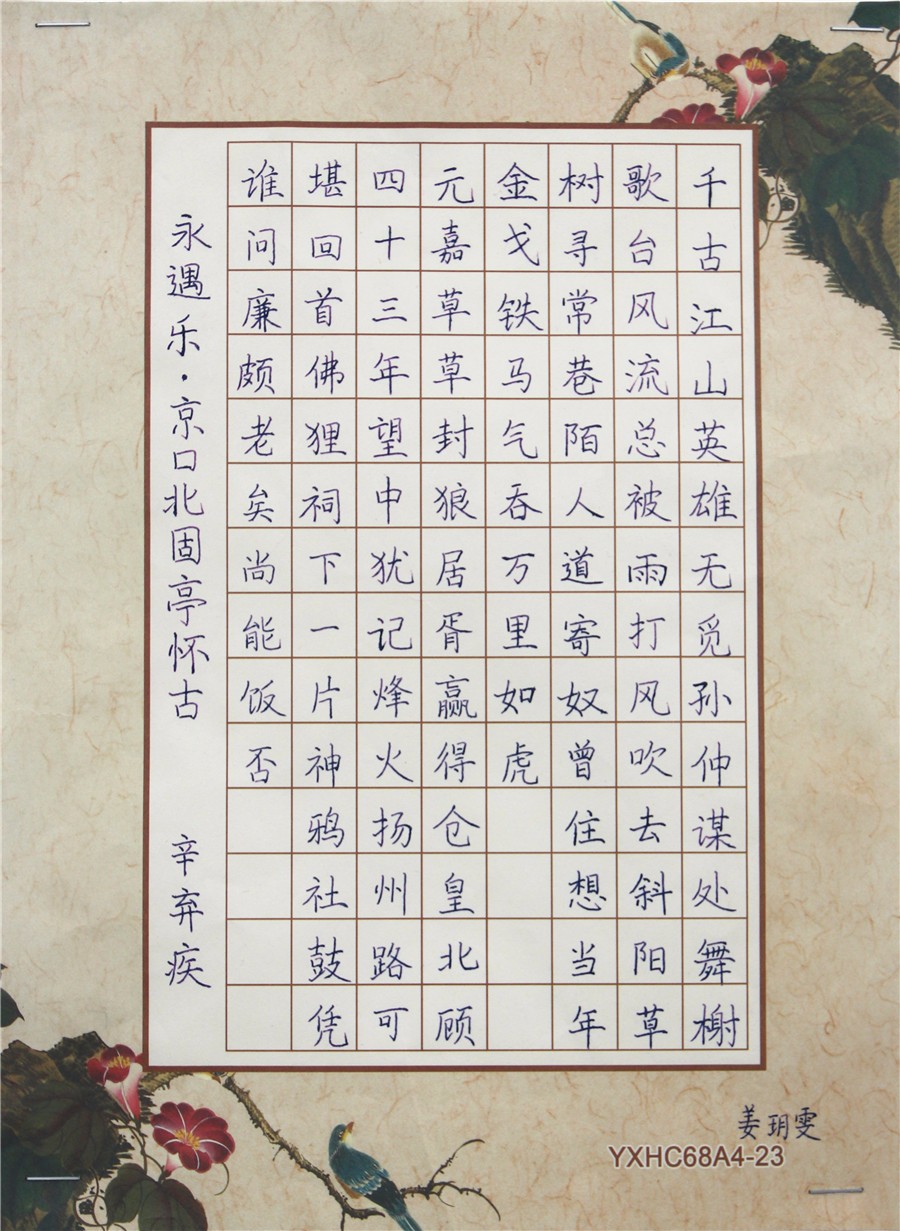 千古江山英雄无觅孙仲谋处舞榭
歌台风流总被雨打风吹去斜阳草
树寻常巷陌人道寄奴曾住想当年
金戈铁马气吞万里如虎
元嘉草草封狼居胥赢得仓皇北顾
四十三年望中犹记烽火扬州路可
堪回首佛狸祠下一片神鸦社鼓凭
谁问廉颇老矣尚能饭否
永遇乐·京口北固亭怀古 辛弃疾
姜玥雯
YXHC68A4-23